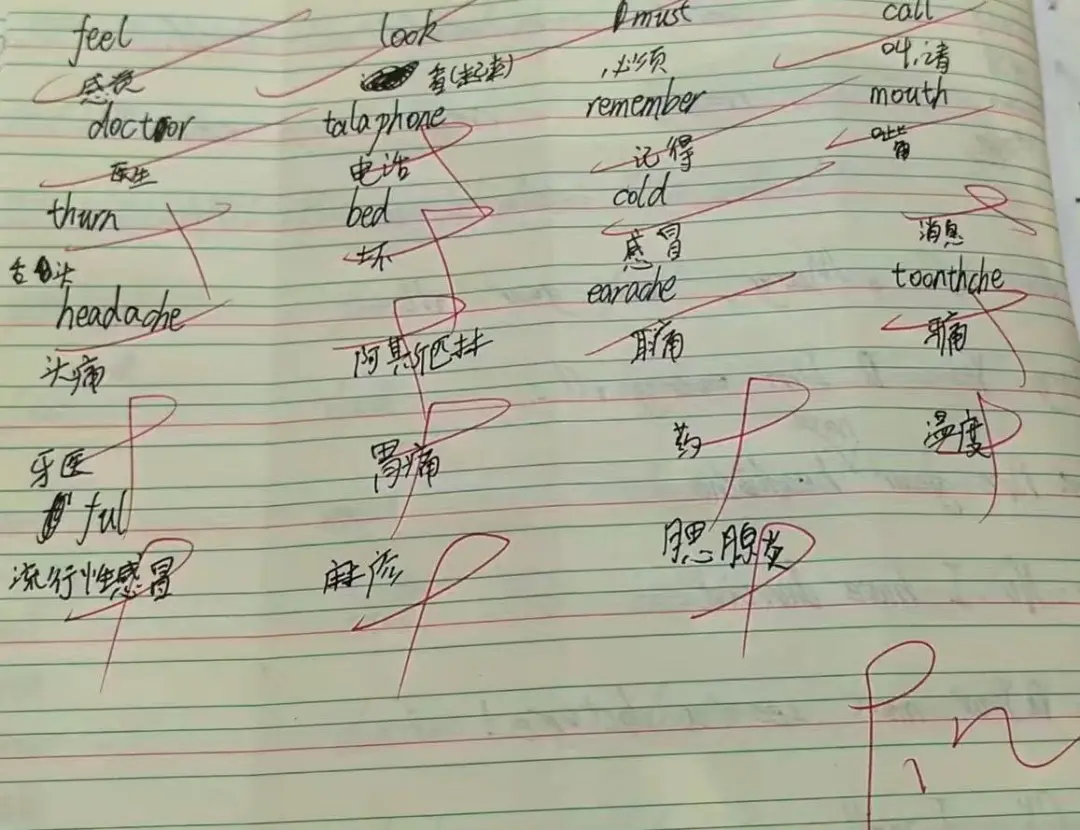 feel look must call
感觉 看(起来) 必须 叫,请
doctor talaphone remember mouth
医生 电话 记得 嘴
thurn bed cold
舌头 坏 感冒 消息
headache earache toonthche
头痛 阿斯匹林 耳痛 牙痛
牙医 胃痛 药 温度
ful
流行性感冒 麻疹 腮腺炎